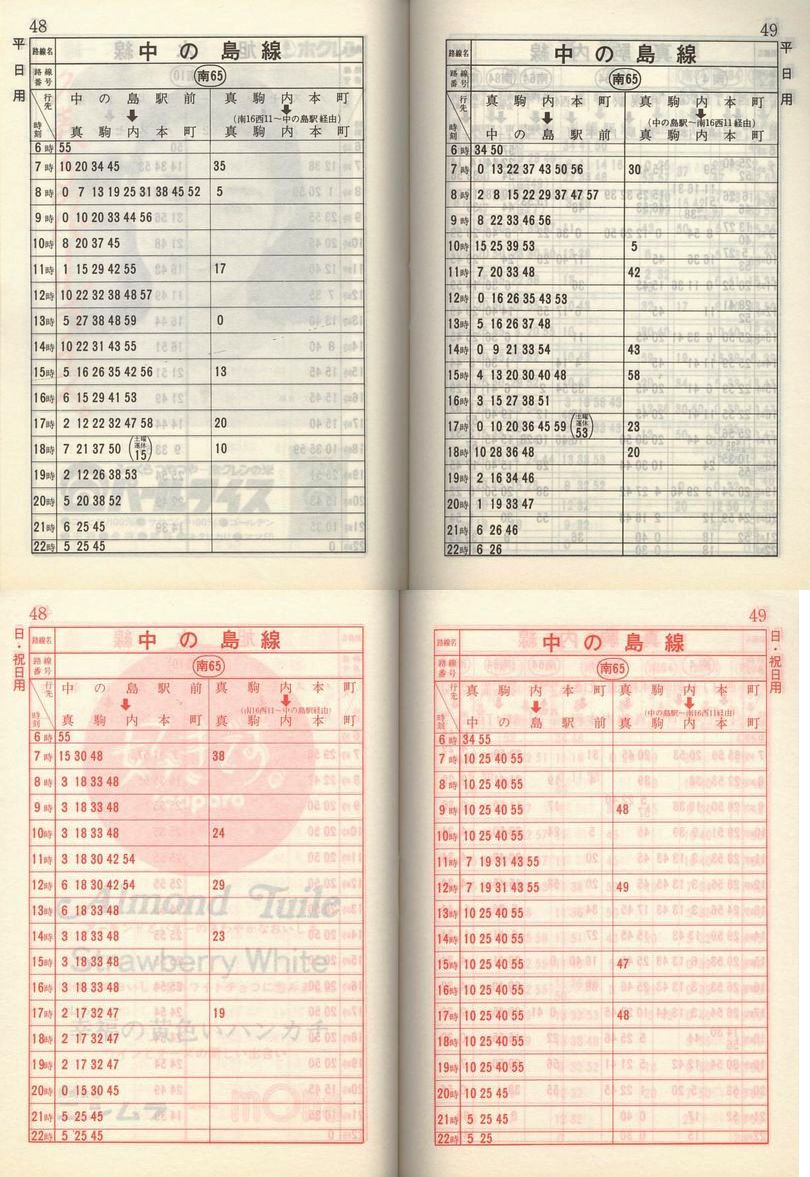 48
平日用
路線名 中の島線
路線番号 南65
行先 時刻
中の島駅前 真駒内本町
(南16西11〜中の島駅経由)
真駒内本町 真駒内本町
6時 55
7時 10 20 34 45 35
8時 0 7 13 19 25 31 38 45 52 5
9時 0 10 20 33 44 56
10時 8 20 37 45
11時 1 15 29 42 55 17
12時 10 22 32 38 48 57
13時 5 27 38 48 59 0
14時 10 22 31 43 55
15時 5 16 26 35 42 56 13
16時 6 15 29 41 53
17時 2 12 22 32 47 58 20
18時 7 21 37 50 (土曜運休15) 10
19時 2 12 26 38 53
20時 5 20 38 52
21時 6 25 45
22時 5 25 45
49
平日用
路線名 中の島線
路線番号 南65
行先 時刻
真駒内本町 真駒内本町
(中の島駅〜南16西11経由)
中の島駅前 真駒内本町
6時 34 50
7時 0 13 22 37 43 50 56 30
8時 2 8 15 22 29 37 47 57
9時 8 22 33 46 56
10時 15 25 39 53 5
11時 7 20 33 48 42
12時 0 16 26 35 43 53
13時 5 16 26 37 48
14時 0 9 21 33 54 43
15時 4 13 20 30 40 48 58
16時 3 15 27 38 51
17時 0 10 20 36 45 59 (土曜運休53) 23
18時 10 28 36 48 20
19時 2 16 34 46
20時 1 19 33 47
21時 6 26 46
22時 6 26
48
日・祝日用
路線名 中の島線
路線番号 南65
行先 時刻
中の島駅前 真駒内本町
(南16西11〜中の島駅経由)
真駒内本町 真駒内本町
6時 55
7時 15 30 48 38
8時 3 18 33 48
9時 3 18 33 48
10時 3 18 33 48 24
11時 3 18 30 42 54
12時 6 18 30 42 54 29
13時 6 18 33 48
14時 3 18 33 48 23
15時 3 18 33 48
16時 3 18 33 48
17時 2 17 32 47 19
18時 2 17 32 47
19時 2 17 32 47
20時 0 15 30 45
21時 5 25 45
22時 5 25 45
49
日・祝日用
路線名 中の島線
路線番号 南65
行先 時刻
真駒内本町 真駒内本町
(中の島駅〜南16西11経由)
中の島駅前 真駒内本町
6時 34 55
7時 10 25 40 55
8時 10 25 40 55
9時 10 25 40 55 48
10時 10 25 40 55
11時 7 19 31 43 55
12時 7 19 31 43 55 49
13時 10 25 40 55
14時 10 25 40 55
15時 10 25 40 55 47
16時 10 25 40 55
17時 10 25 40 55 48
18時 10 25 40 55
19時 10 25 40 55
20時 10 25 45
21時 5 25 45
22時 5 25